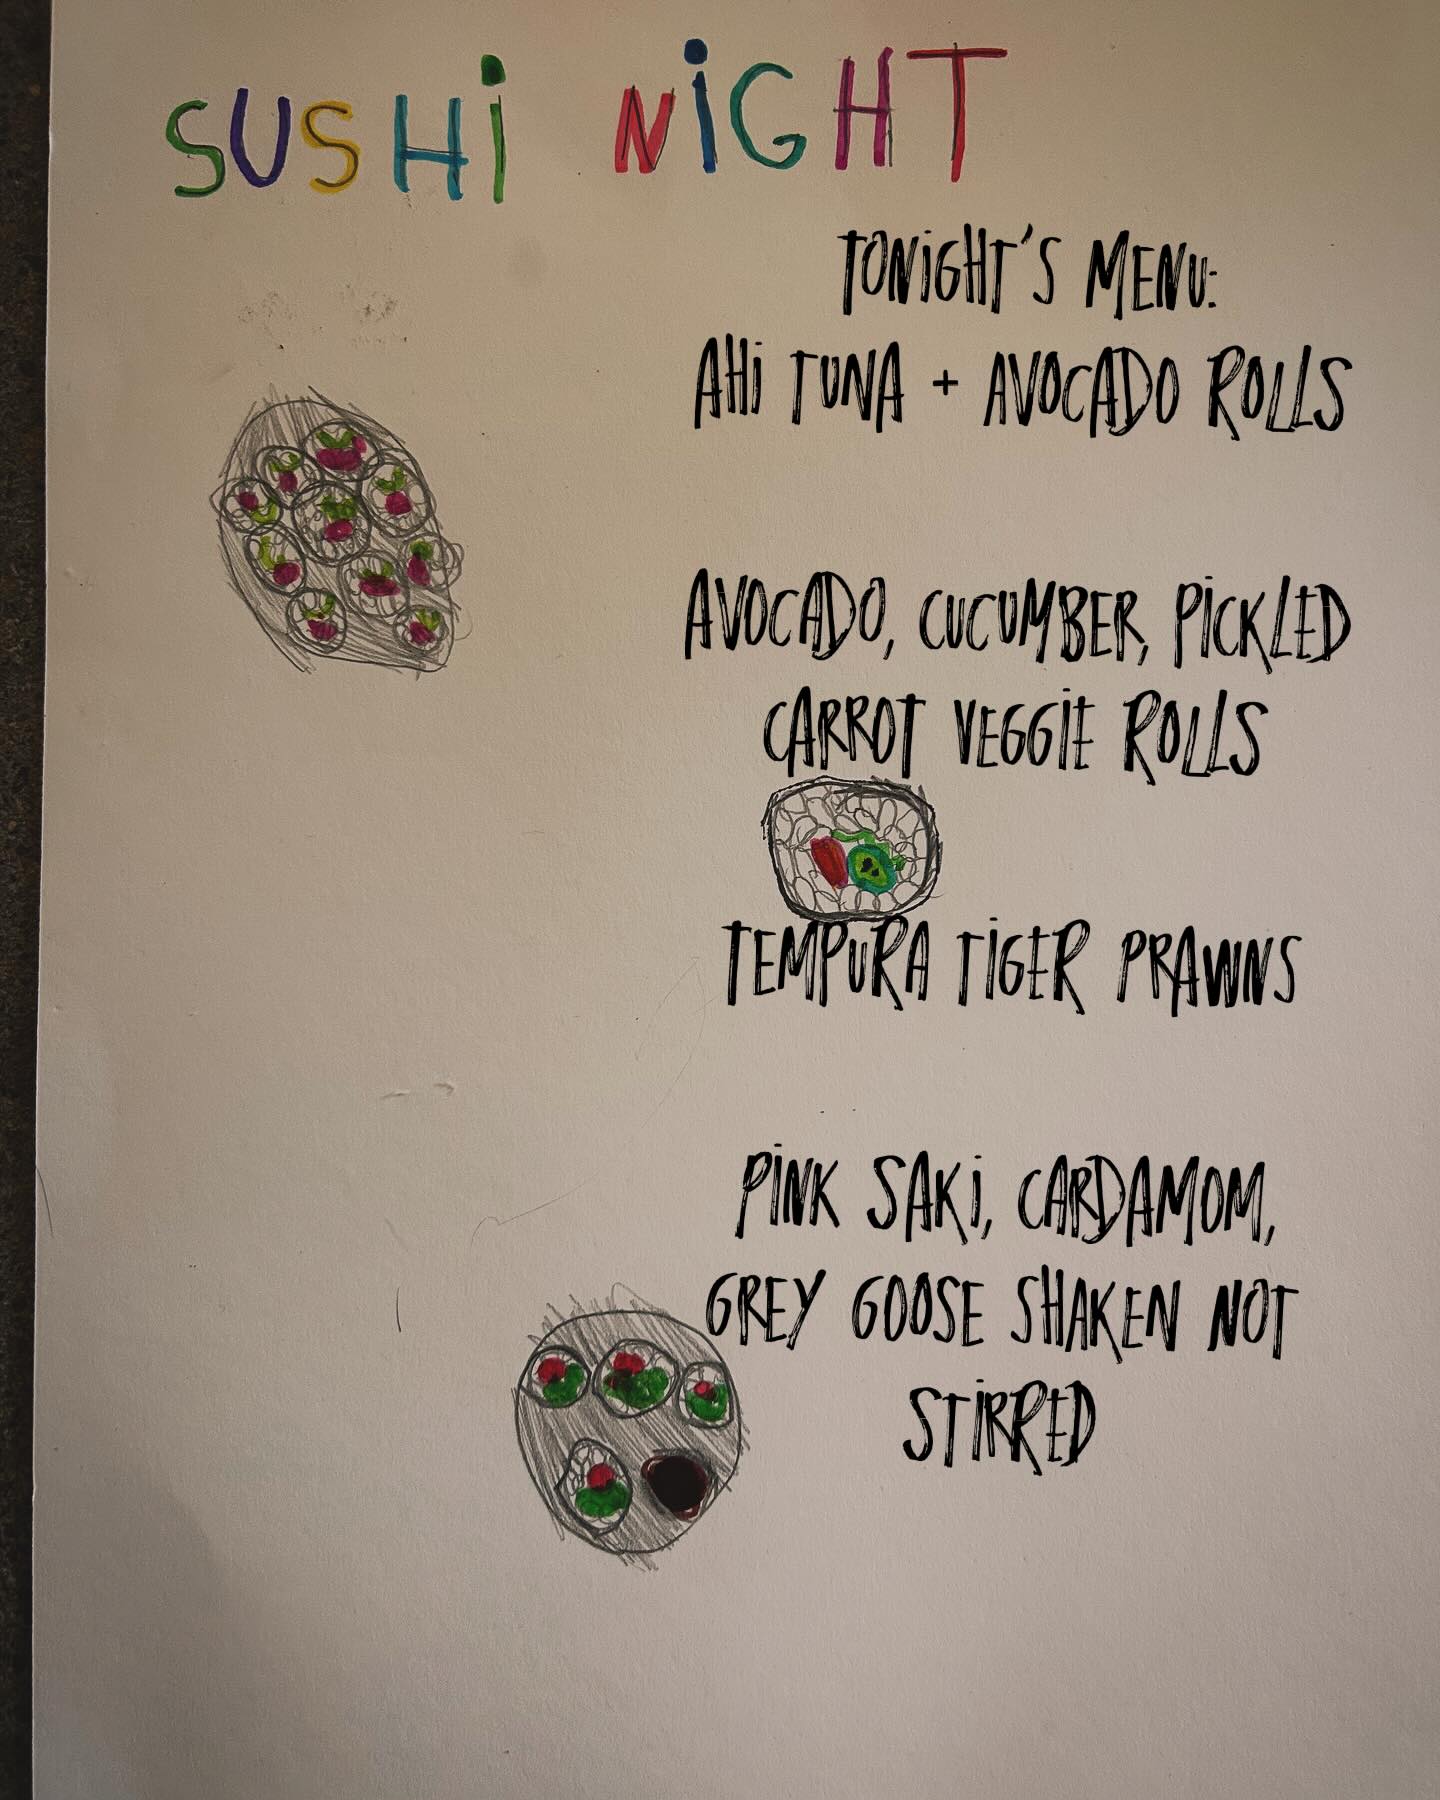 SUSHi NiGHT
TONiGHT'S MENU:
AHi TUNA + AVOCADO ROLLS
AVOCADO, CUCUMBER, PiCKLED
CARROT VEGGIE ROLLS
TEMPURA TiGER PRAWNS
PiNK SAKi, CARDAMOM,
GREY GOOSE SHAKEN NOT
STiRRED